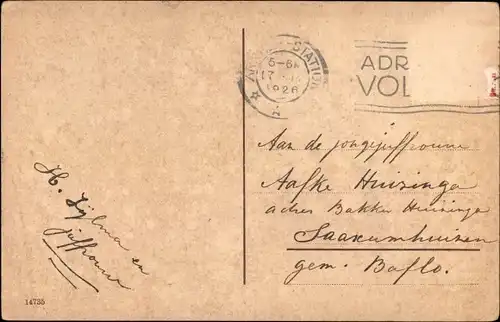 STATION
5-6
17
1926
ADR
VOL
Aan de jongejuffrouw
Aafke Huizinga
adres Bakker Huizinga
Saaxumhuizen
gem. Baflo.
H. Zijlma en
juffrouw
14735